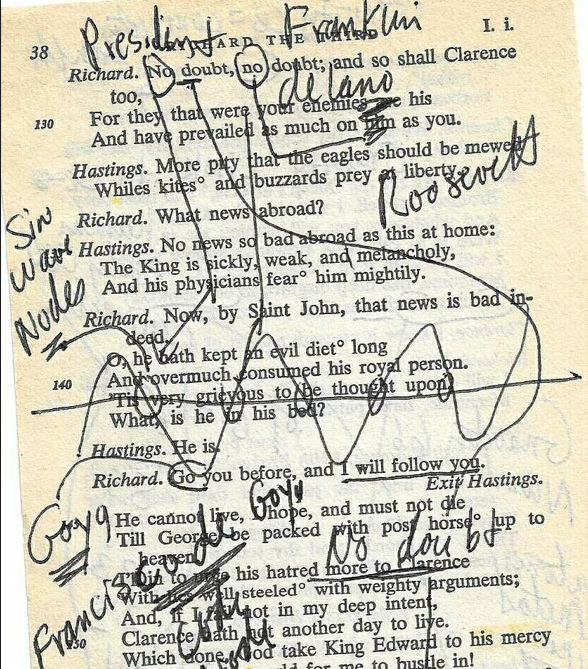 President Franklin
38 RICHARD THE THIRD I. i.
Richard. No doubt, no doubt; and so shall Clarence
delano
too,
For they that were your enemies are his
130 And have prevailed as much on him as you.
Hastings. More pity that the eagles should be mewed
Whiles kites° and buzzards prey at liberty.
Roosevelt
Richard. What news abroad?
Sin
Wave
Nodes
Hastings. No news so bad abroad as this at home:
The King is sickly, weak, and melancholy,
And his physicians fear° him mightily.
Richard. Now, by Saint John, that news is bad in-
deed.
O, he hath kept an evil diet° long
And overmuch consumed his royal person.
140 'Tis very grievous to be thought upon.
What, is he in his bed?
Hastings. He is.
Richard. Go you before, and I will follow you.
Exit Hastings.
Goya
Goya
He cannot live, I hope, and must not die
Till George be packed with post horse° up to
heaven.
No doubt
Francisco de
I'll in to urge his hatred more to Clarence
With lies well steeled° with weighty arguments;
And, if I fail not in my deep intent,
Clarence hath not another day to live.
150 Which done, God take King Edward to his mercy
world for me to bustle in!